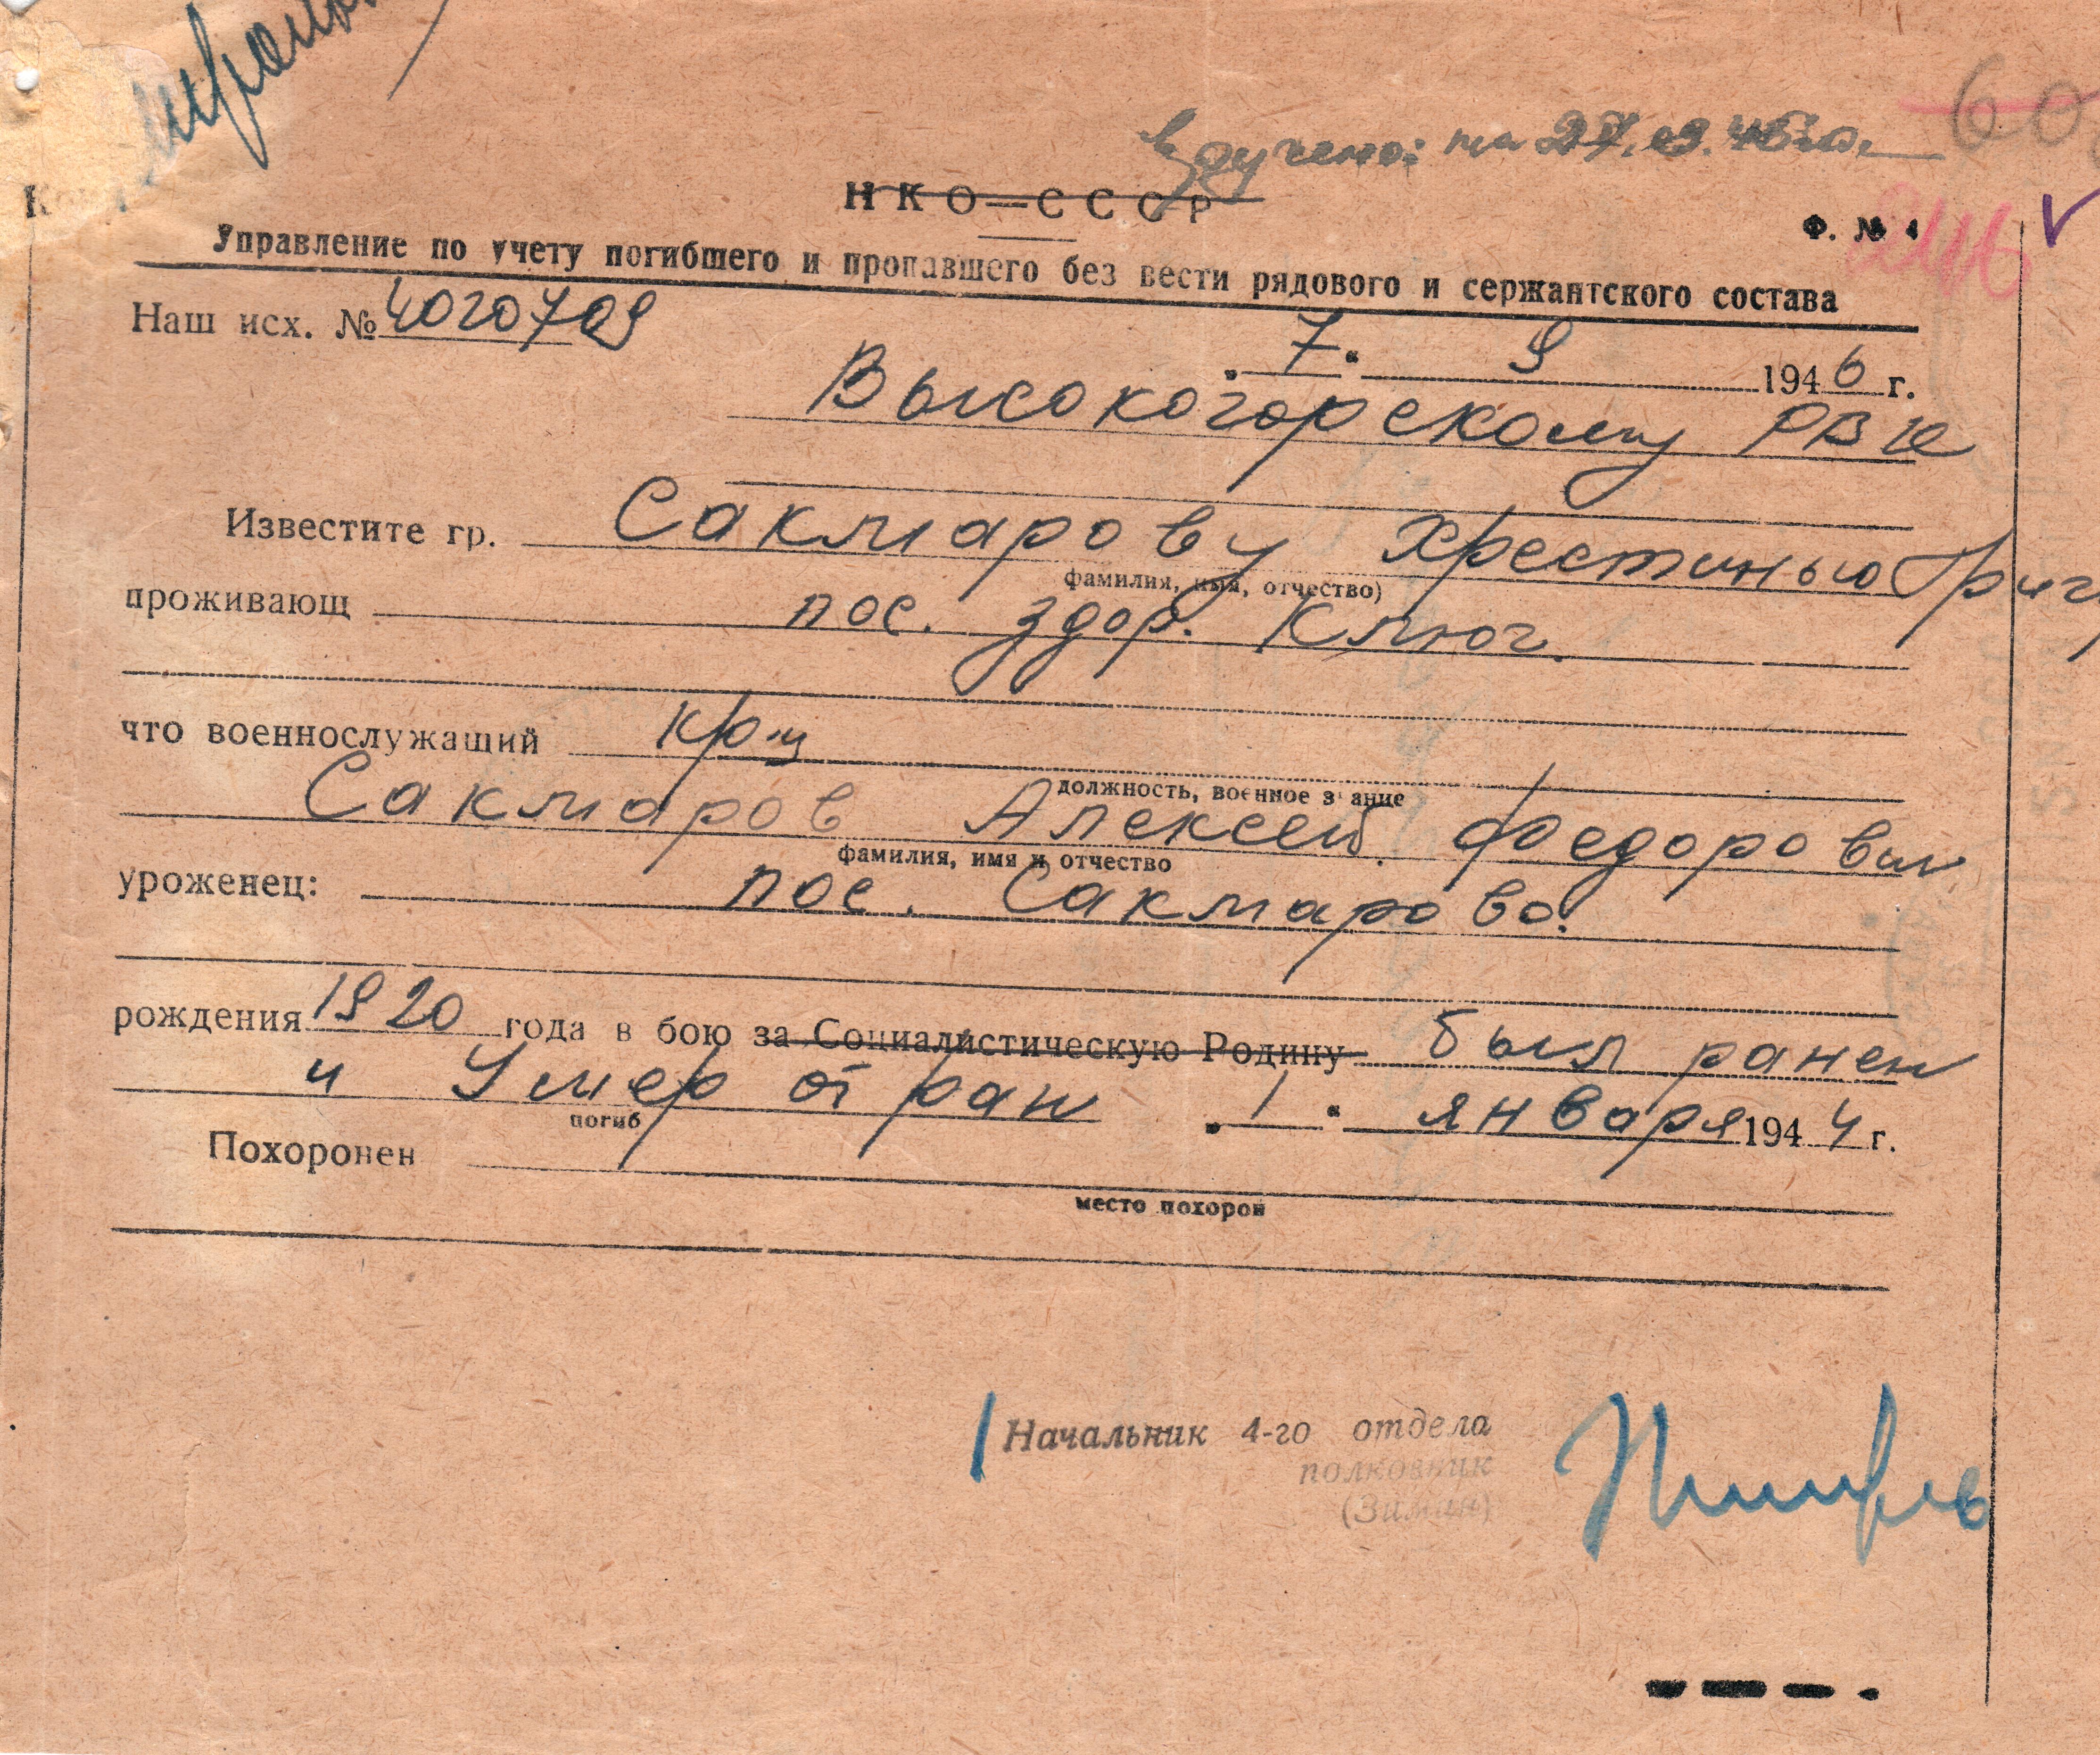 вручено: на 27.09.46 го.
60
НКО—СССР
Ф. № 4
246
Управление по учету погибшего и пропавшего без вести рядового и сержантского состава
Наш исх. № 4020709
„7“ 9 1946 г.
Высокогорскому РВК
Известите гр. Сакмарову Хрестинью Григ
фамилия, имя, отчество)
проживающ пос. здор. Ключ.
что военнослужащий кр-ц
должность, военное звание
Сакмаров Алексей Федорович
фамилия, имя и отчество
уроженец: пос. Сакмарово.
рождения 1920 года в бою за Социалистическую Родину был ранен
и Умер от ран „1“ января 1944 г.
погиб
Похоронен
место похорон
Начальник 4-го отдела
полковник
(Зимин)